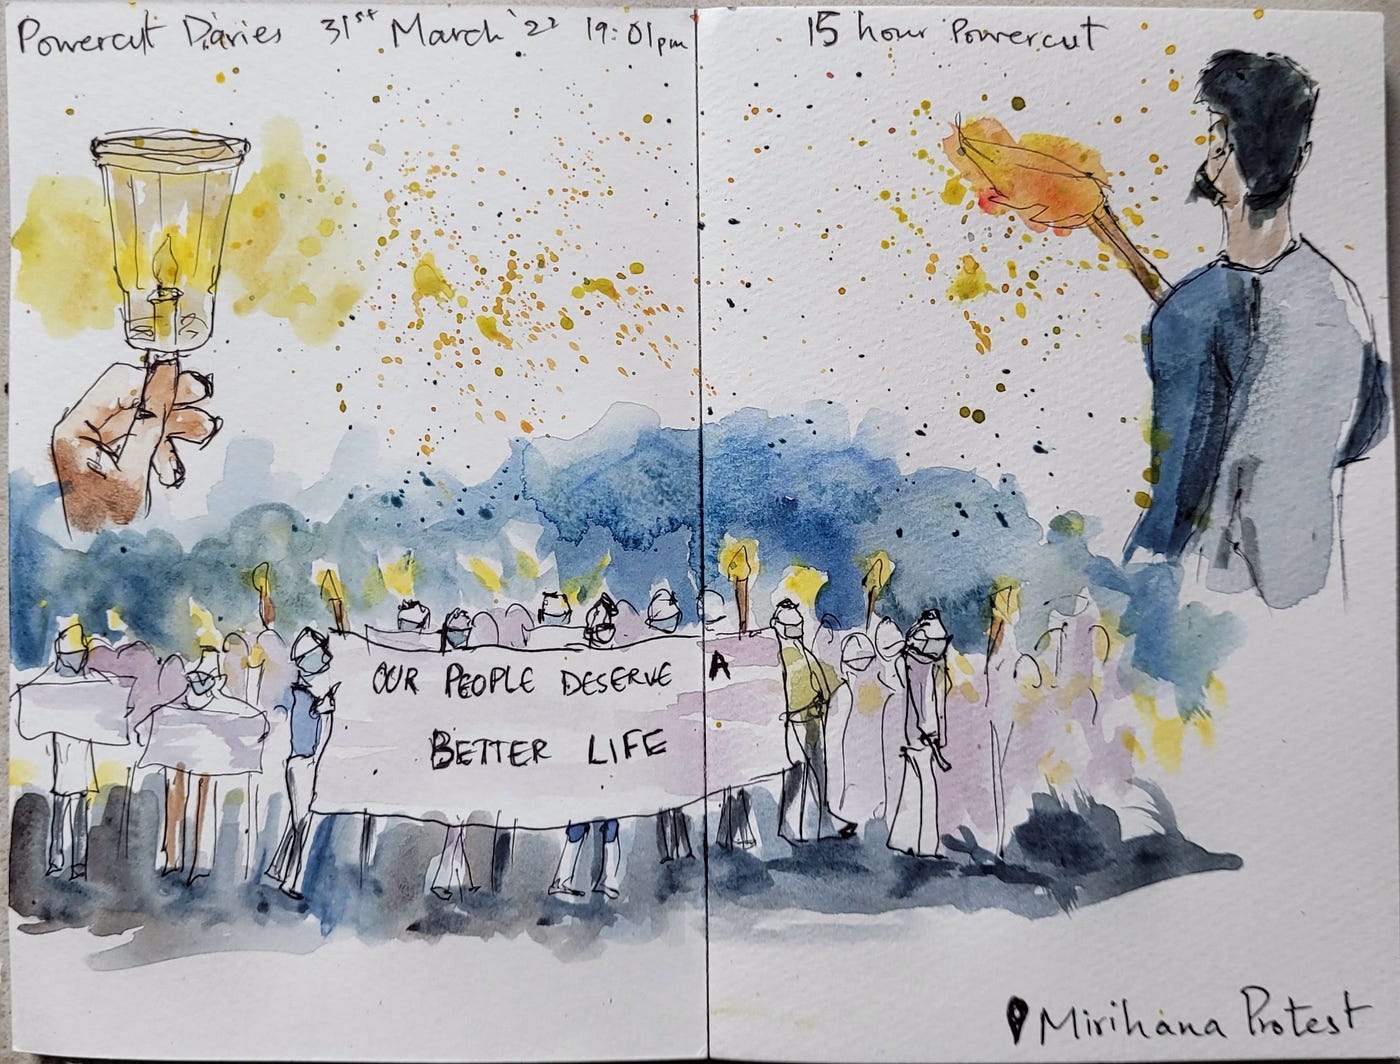 Powercut Diaries 31st March '22 19:01pm
15 hour Powercut
OUR PEOPLE DESERVE A
BETTER LIFE
Mirihana Protest